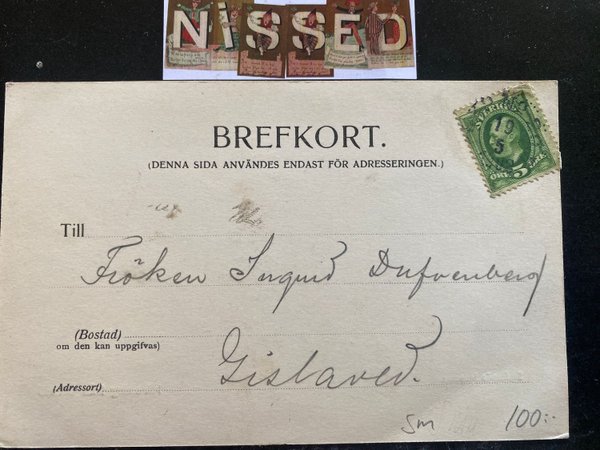 NISSED
BREFKORT.
(DENNA SIDA ANVÄNDES ENDAST FÖR ADRESSERINGEN.)
SVERIGE
19
5
ÖRE 5 ÖRE
Till
Fröken Ingrid Dufvenberg
(Bostad)
om den kan uppgifvas)
Gislaved.
(Adressort)
Sm 100:-